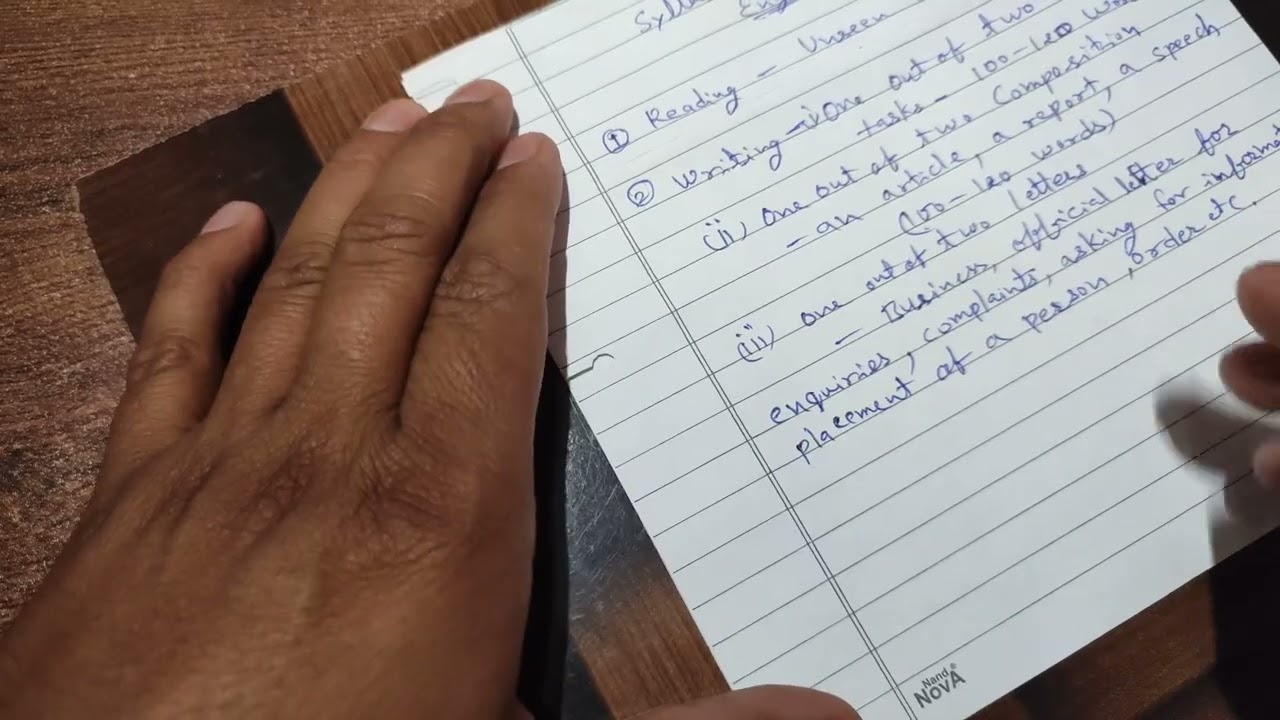 Eng
① Reading - Unseen
② Writing - i) One out of two
tasks - 100-120
(ii) One out of two Composition
- an article, a report, a speech
(100-120 words)
(iii) one out of two letters
- Business, official letter for
enquiries, complaints, asking for
placement of a person, order etc.
Nand
NOVA